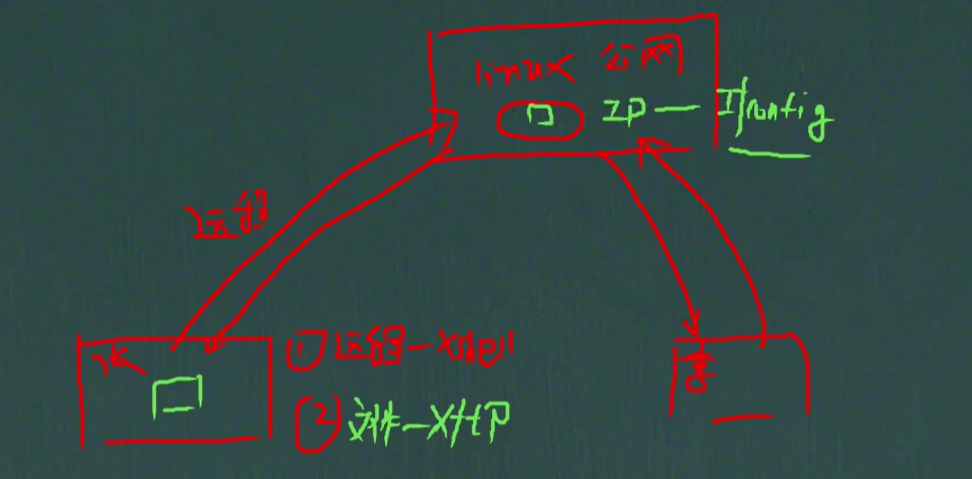 linux 公网
IP — Ifconfig
远程
张
①远程-Xshell
李
②文件-Xftp